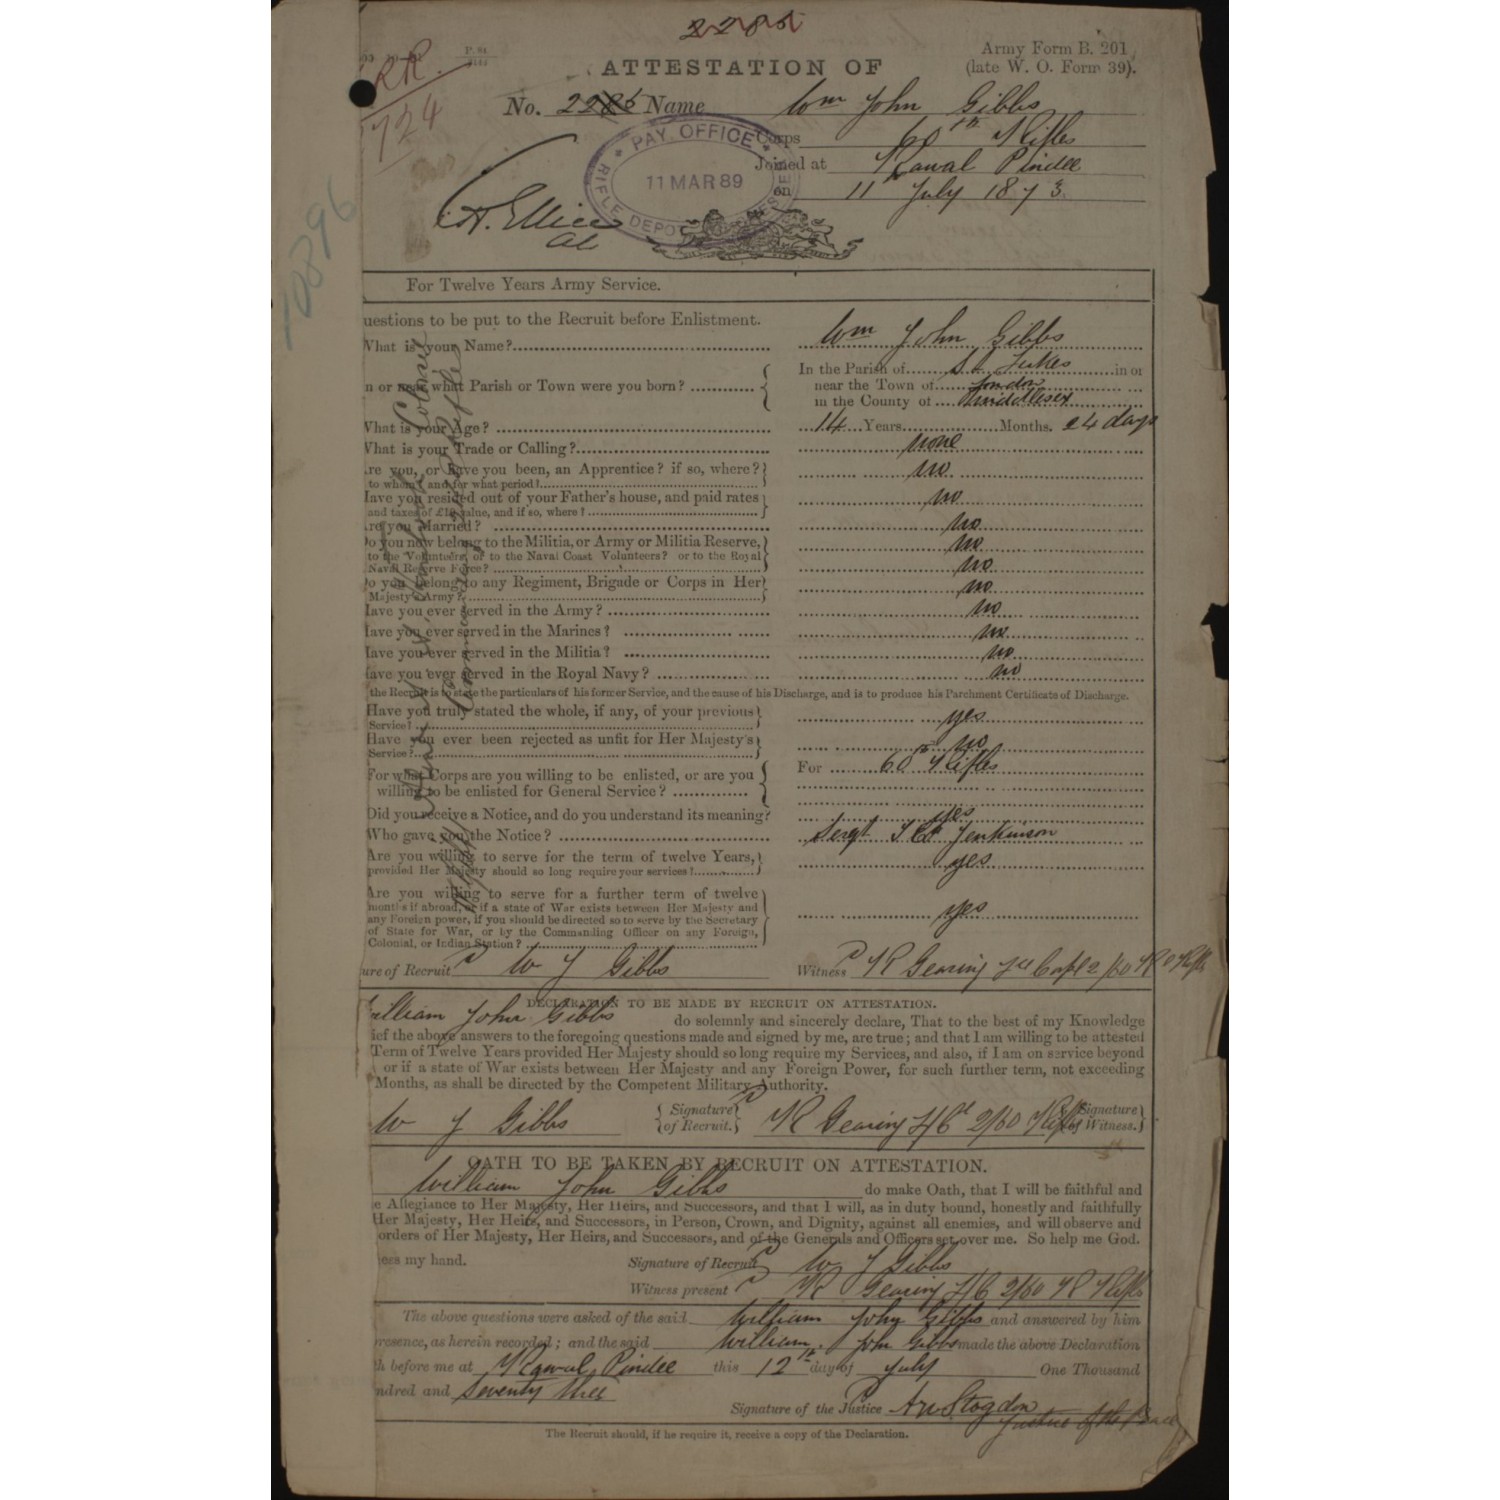 2285
P. 84
RR.
724
Army Form B. 201
(late W. O. Form 39).
ATTESTATION OF
No. 2285 Name Wm John Gibbs
Corps 60th Rifles
Joined at Rawal Pindee
on 11 July 1873
PAY OFFICE
11 MAR 89
RIFLE DEPOT
70896
For Twelve Years Army Service.
uestions to be put to the Recruit before Enlistment.
What is your Name? Wm John Gibbs
n or near what Parish or Town were you born? In the Parish of St Lukes in or
near the Town of London
in the County of Middlesex
What is your Age? 14 Years Months. 24 days
What is your Trade or Calling? none
re you, or have you been, an Apprentice? if so, where? no
to whom? and for what period?
Have you resided out of your Father's house, and paid rates no
and taxes of £10 value, and if so, where?
Are you Married? no
Do you now belong to the Militia, or Army or Militia Reserve, no
to the Volunteers, or to the Naval Coast Volunteers? or to the Royal
Naval Reserve Force? no
Do you belong to any Regiment, Brigade or Corps in Her no
Majesty's Army?
Have you ever served in the Army? no
Have you ever served in the Marines? no
Have you ever served in the Militia? no
Have you ever served in the Royal Navy? no
the Recruit is to state the particulars of his former Service, and the cause of his Discharge, and is to produce his Parchment Certificate of Discharge.
Have you truly stated the whole, if any, of your previous yes
Service?
Have you ever been rejected as unfit for Her Majesty's no
Service?
For what Corps are you willing to be enlisted, or are you For 60th Rifles
willing to be enlisted for General Service?
Did you receive a Notice, and do you understand its meaning? yes
Who gave you the Notice? Sergt Jenkinson
Are you willing to serve for the term of twelve Years, yes
provided Her Majesty should so long require your services?
Are you willing to serve for a further term of twelve
months if abroad, or if a state of War exists between Her Majesty and
any Foreign power, if you should be directed so to serve by the Secretary yes
of State for War, or by the Commanding Officer on any Foreign,
Colonial, or Indian Station?
ure of Recruit W J Gibbs Witness R Gearing 2/60 Rifles
Colonel
Commanding 2/60 Rifles
DECLARATION TO BE MADE BY RECRUIT ON ATTESTATION.
William John Gibbs do solemnly and sincerely declare, That to the best of my Knowledge
ief the above answers to the foregoing questions made and signed by me, are true; and that I am willing to be attested
Term of Twelve Years provided Her Majesty should so long require my Services, and also, if I am on service beyond
or if a state of War exists between Her Majesty and any Foreign Power, for such further term, not exceeding
Months, as shall be directed by the Competent Military Authority.
W J Gibbs Signature of Recruit. R Gearing 2/60 Rifles Signature of Witness.
OATH TO BE TAKEN BY RECRUIT ON ATTESTATION.
William John Gibbs do make Oath, that I will be faithful and
e Allegiance to Her Majesty, Her Heirs, and Successors, and that I will, as in duty bound, honestly and faithfully
Her Majesty, Her Heirs, and Successors, in Person, Crown, and Dignity, against all enemies, and will observe and
orders of Her Majesty, Her Heirs, and Successors, and of the Generals and Officers set over me. So help me God.
ess my hand. Signature of Recruit W J Gibbs
Witness present R Gearing 2/60 R Rifles
The above questions were asked of the said William John Gibbs and answered by him
presence, as herein recorded; and the said William John Gibbs made the above Declaration
h before me at Rawal Pindee this 12th day of July One Thousand
ndred and Seventy three
Signature of the Justice A W Stogdon
Justice of the Peace
The Recruit should, if he require it, receive a copy of the Declaration.